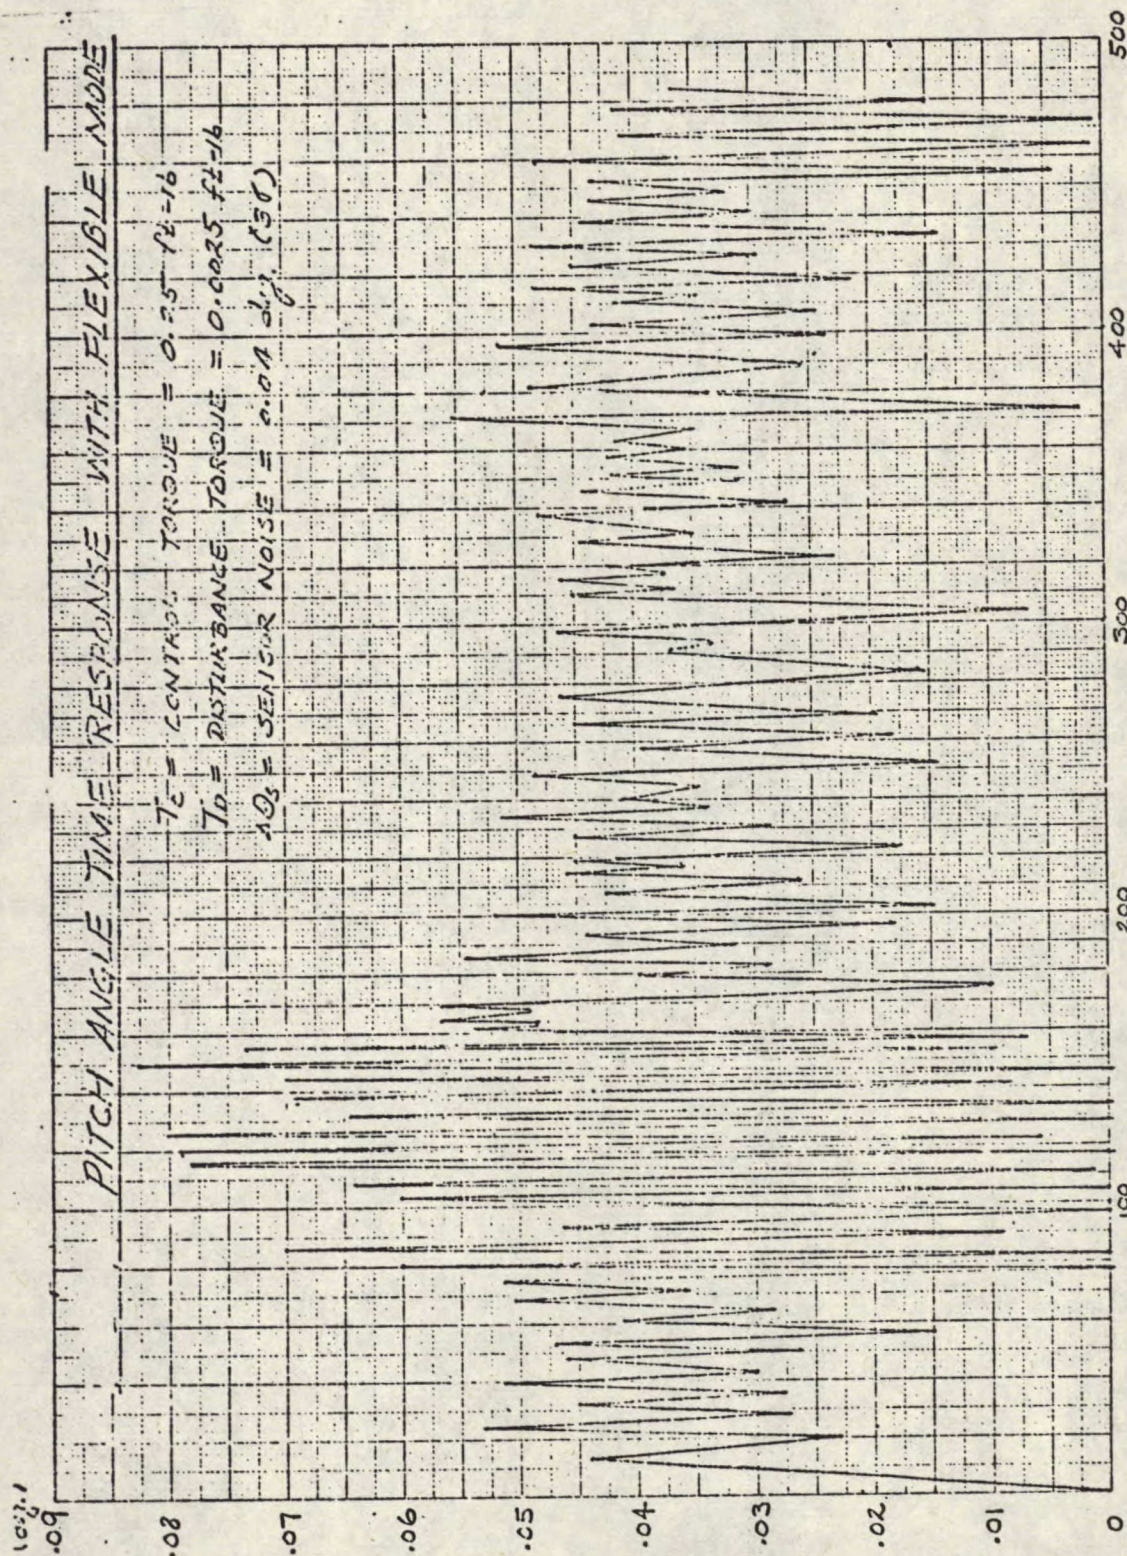 PITCH ANGLE TIME RESPONSE WITH FLEXIBLE MODE
TC = CONTROL TORQUE = 0.25 ft-lb
TD = DISTURBANCE TORQUE = 0.0025 ft-lb
ΔθS = SENSOR NOISE = 0.04 deg. (3σ)
(deg.)
.09
.08
.07
.06
.05
.04
.03
.02
.01
0
100
200
300
400
500